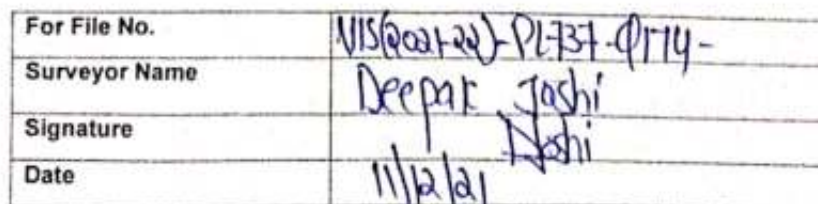 For File No. VIS(2021-22)-PL737-
Surveyor Name Deepak Joshi
Signature DJoshi
Date 11/12/21